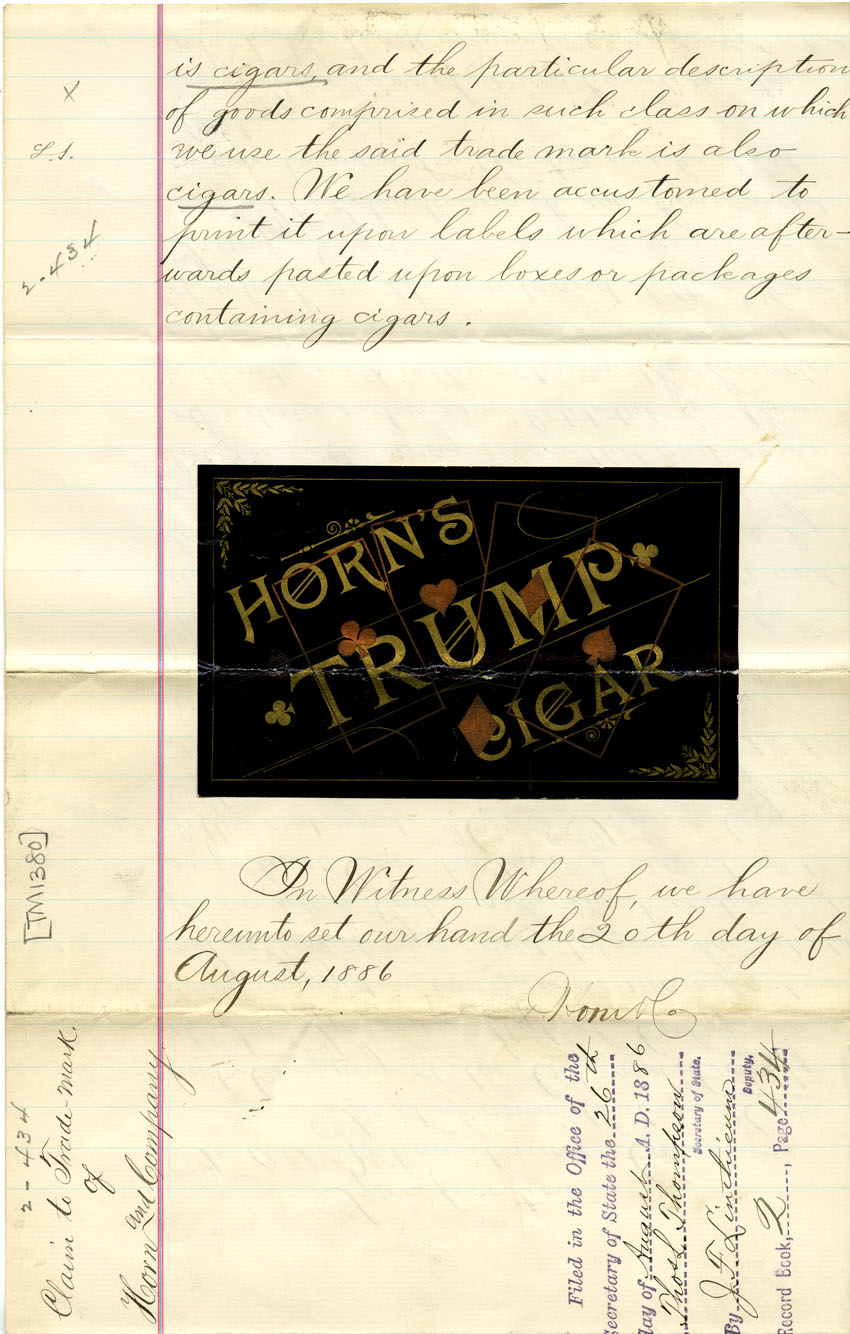 is cigars, and the particular description
of goods comprised in such class on which
we use the said trade mark is also
cigars. We have been accustomed to
print it upon labels which are after-
wards pasted upon boxes or packages
containing cigars.
X
L.S.
2-434
HORN'S
TRUMP
CIGAR
In Witness Whereof, we have
hereunto set our hand the 20th day of
August, 1886
Horn & Co
[TM1380]
2-434
Claim to Trade Mark.
of
Horn and Company
Filed in the Office of the
Secretary of State the 26th
day of August A. D. 1886
Thos L. Thompson
Secretary of State.
By J. F. Linthicum
Deputy.
Record Book, 2, Page 434